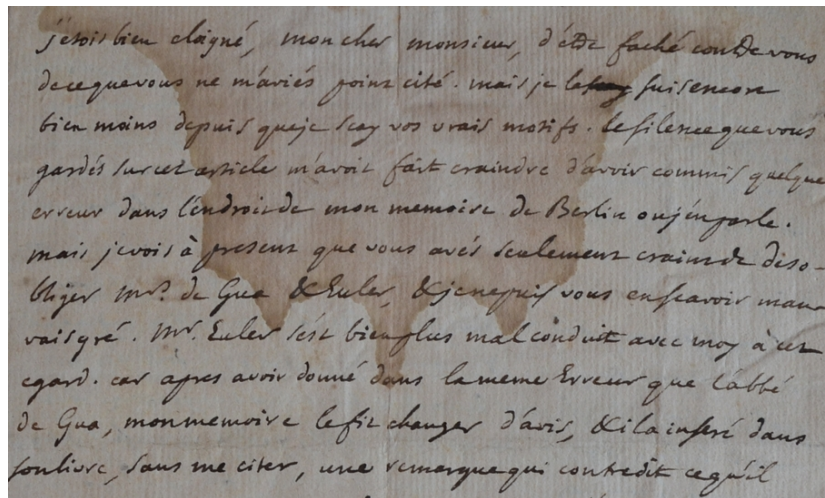 j'étois bien eloigné, mon cher monsieur, d'être faché contre vous
de ce que vous ne m'aviés point cité. mais je le suis encore
bien moins depuis que je scay vos vrais motifs. le silence que vous
gardés sur cet article m'avoit fait craindre d'avoir commis quelque
erreur dans l'endroit de mon memoire de Berlin ou j'en parle.
mais je vois à present que vous avés seulement craint de diso-
bliger mrs. de Gua & Euler, & je ne puis vous en scavoir mau
vais gré. Mr. Euler s'est bien plus mal conduit avec moy à cet
egard. car apres avoir donné dans la meme Erreur que l'abbé
de Gua, mon memoire le fit changer d'avis, & il a inseré dans
son livre, sans me citer, une remarque qui contredit ce qu'il